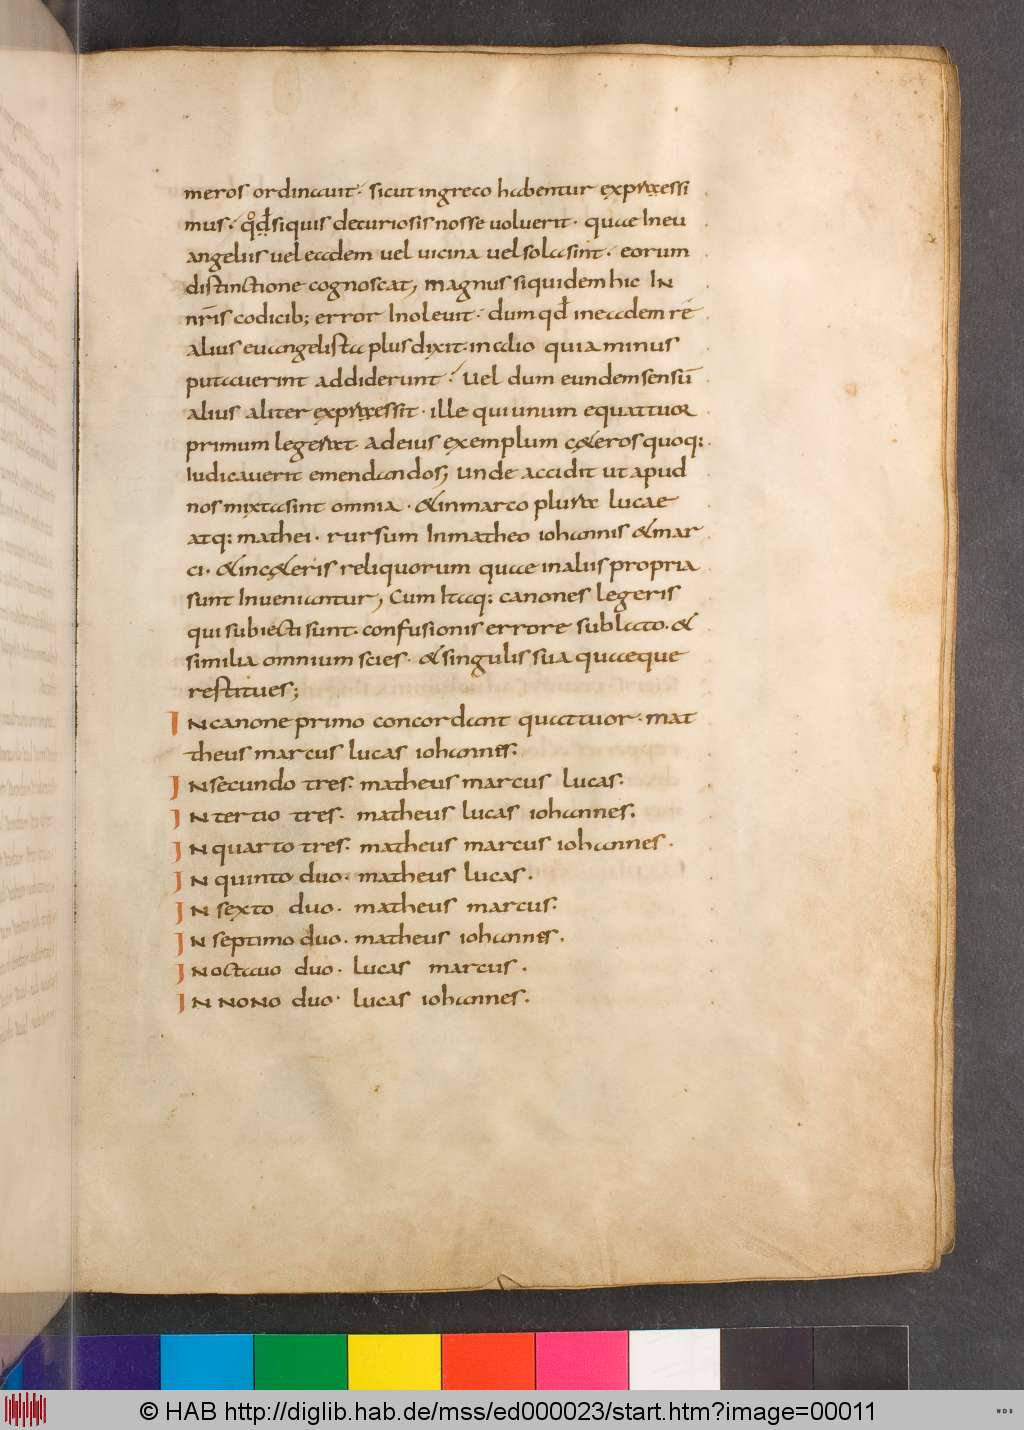 meros ordinauit· sicut ingreco habentur expressi
mus· qđ siquis decuriosis nosse uoluerit· quae Ineu
angeliis uel eadem uel uicina uel sola sint· eorum
distinctione cognoscat; magnus siquidem hic IN
nr̄is codicib; error Inoleuit· dum qđ ineadem rē
alius euangelista plus dixit· inalio quia minus
putauerint addiderunt· Vel dum eundem sensū
alius aliter expressit· ille qui unum equattuor
primum legerat· adeius exemplum c&eros quoq:
Iudicauerit emendandos; unde accidit ut apud
nos mixta sint omnia· &inmarco plura lucae
atq: mathei· rursum Inmatheo iohannis &mar
ci· &inc&eris reliquorum quae inaliis propria
sunt Inueniantur; Cum Itaq: canones legeris
qui subiecti sunt· confusionis errore sublato· &
similia omnium scies· &singulis sua quaeque
restitues;
IN canone primo concordant quattuor· mat
theus marcus lucas iohannes·
IN secundo tres· matheus marcus lucas·
IN tertio tres· matheus lucas iohannes·
IN quarto tres· matheus marcus iohannes·
IN quinto duo· matheus lucas·
IN sexto duo· matheus marcus·
IN septimo duo· matheus iohannes·
IN octauo duo· lucas marcus·
IN NONO duo· lucas iohannes·
© HAB http://diglib.hab.de/mss/ed000023/start.htm?image=00011